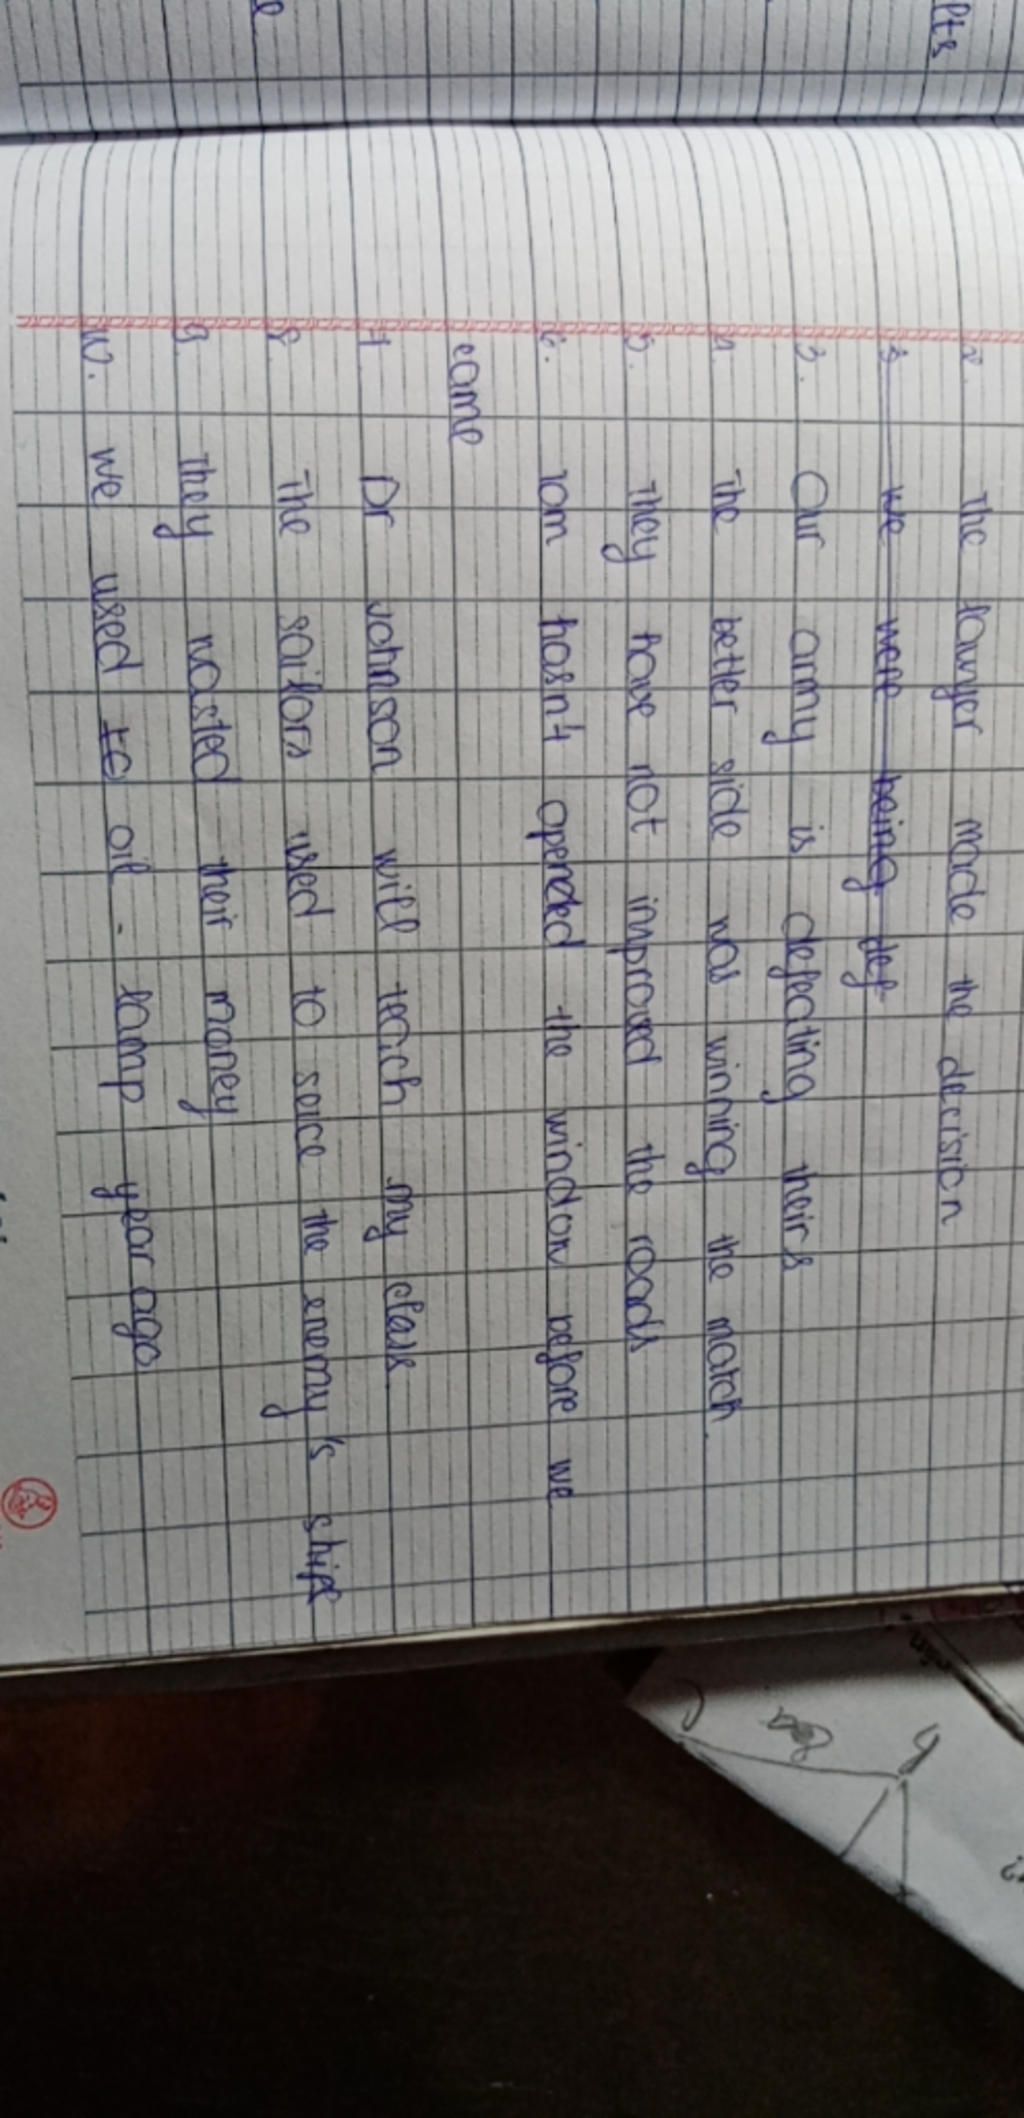 2. The lawyer made the decision
3. we were being def
3. Our army is defeating theirs
4. The better side was winning the match.
5. They have not improved the roads
6. Tom hasn't opened the window before we
came
7. Dr Johnson will teach my class
8. The sailors used to seice the enemy's ships
9. They wasted their money
10. we used to oil-lamp year ago